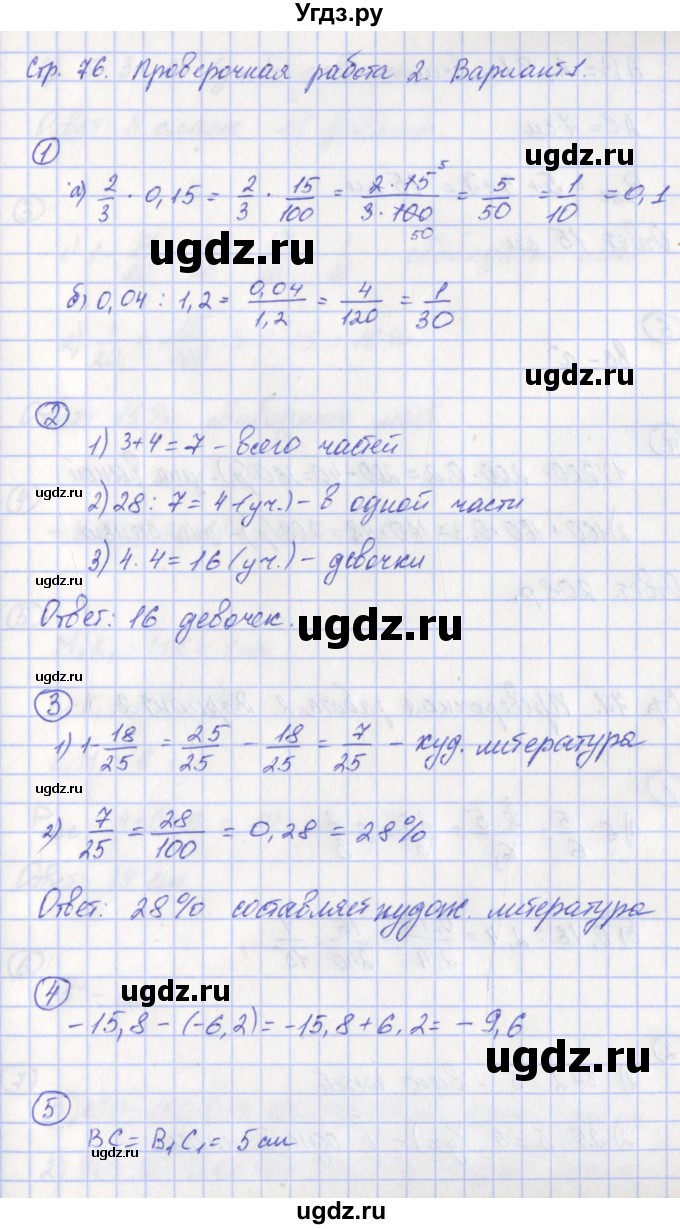 Угдз.ру
Стр. 76. Проверочная работа 2. Вариант 1.
ugdz.ru
1
а) 2/3 · 0,15 = 2/3 · 15/100 = 2·15 5/3·100 50 = 5/50 = 1/10 = 0,1
ugdz.ru
б) 0,04 : 1,2 = 0,04/1,2 = 4/120 = 1/30
ugdz.ru
2
1) 3+4=7 - всего частей
ugdz.ru
2) 28 : 7 = 4 (уч.) - в одной части
3) 4 · 4 = 16 (уч.) - девочки
ugdz.ru
Ответ: 16 девочек.
ugdz.ru
ugdz.ru
3
1) 1 - 18/25 = 25/25 - 18/25 = 7/25 - худ. литература
ugdz.ru
2) 7/25 = 28/100 = 0,28 = 28%
Ответ: 28% составляет худож. литература
ugdz.ru
4
-15,8 - (-6,2) = -15,8 + 6,2 = -9,6
ugdz.ru
5
BC = B₁C₁ = 5 см
ugdz.ru
ugdz.ru
ugdz.ru